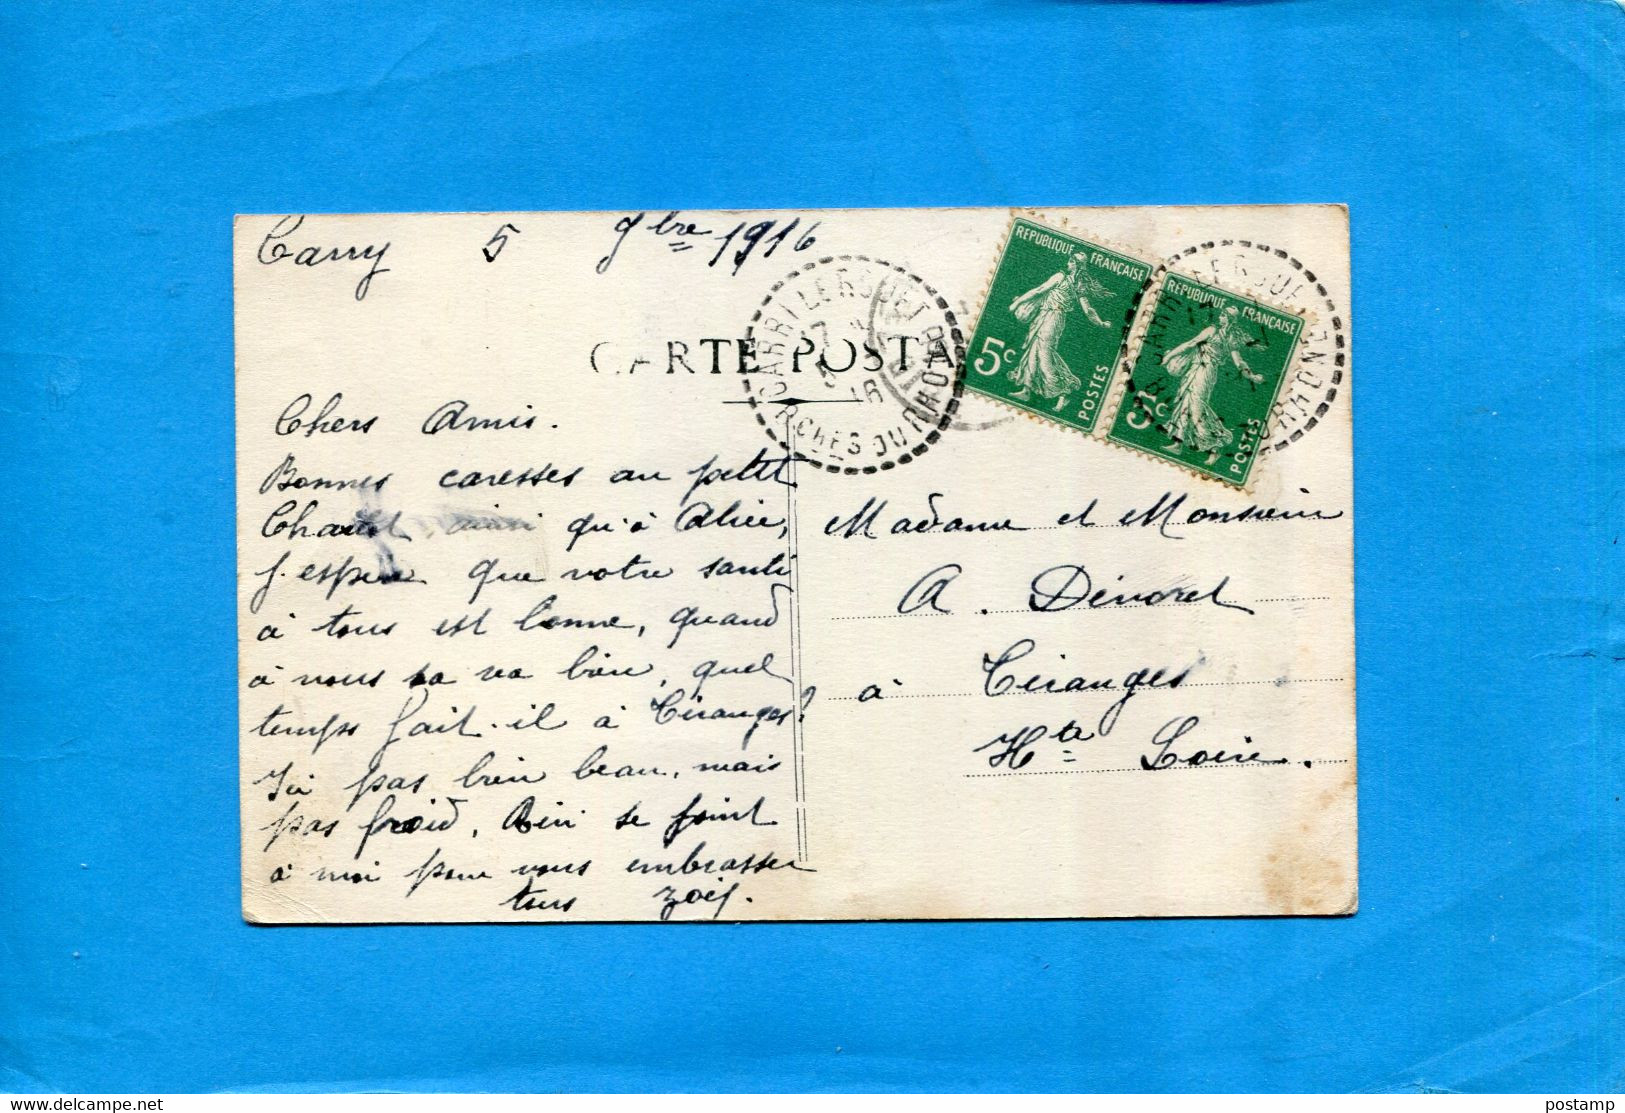 Carry 5 9bre 1916
CARTE POSTA
CARRY LE ROUET
17
5
16
BCHES DU RHONE
REPUBLIQUE FRANÇAISE
5c
POSTES
REPUBLIQUE FRANÇAISE
5c
POSTES
Chers Amis.
Bonnes caresses au petit
ainsi qu'à Alice,
j'espère que votre santé
à tous est bonne, quand
à nous sa va bien, quel
temps fait-il à Tiranges?
Ici pas bien beau, mais
pas froid, se joint
à moi pour vous embrasser
tous Zoé.
Madame et Monsieur
A. Dénoret
à Tiranges
Hte Loire.
postamp